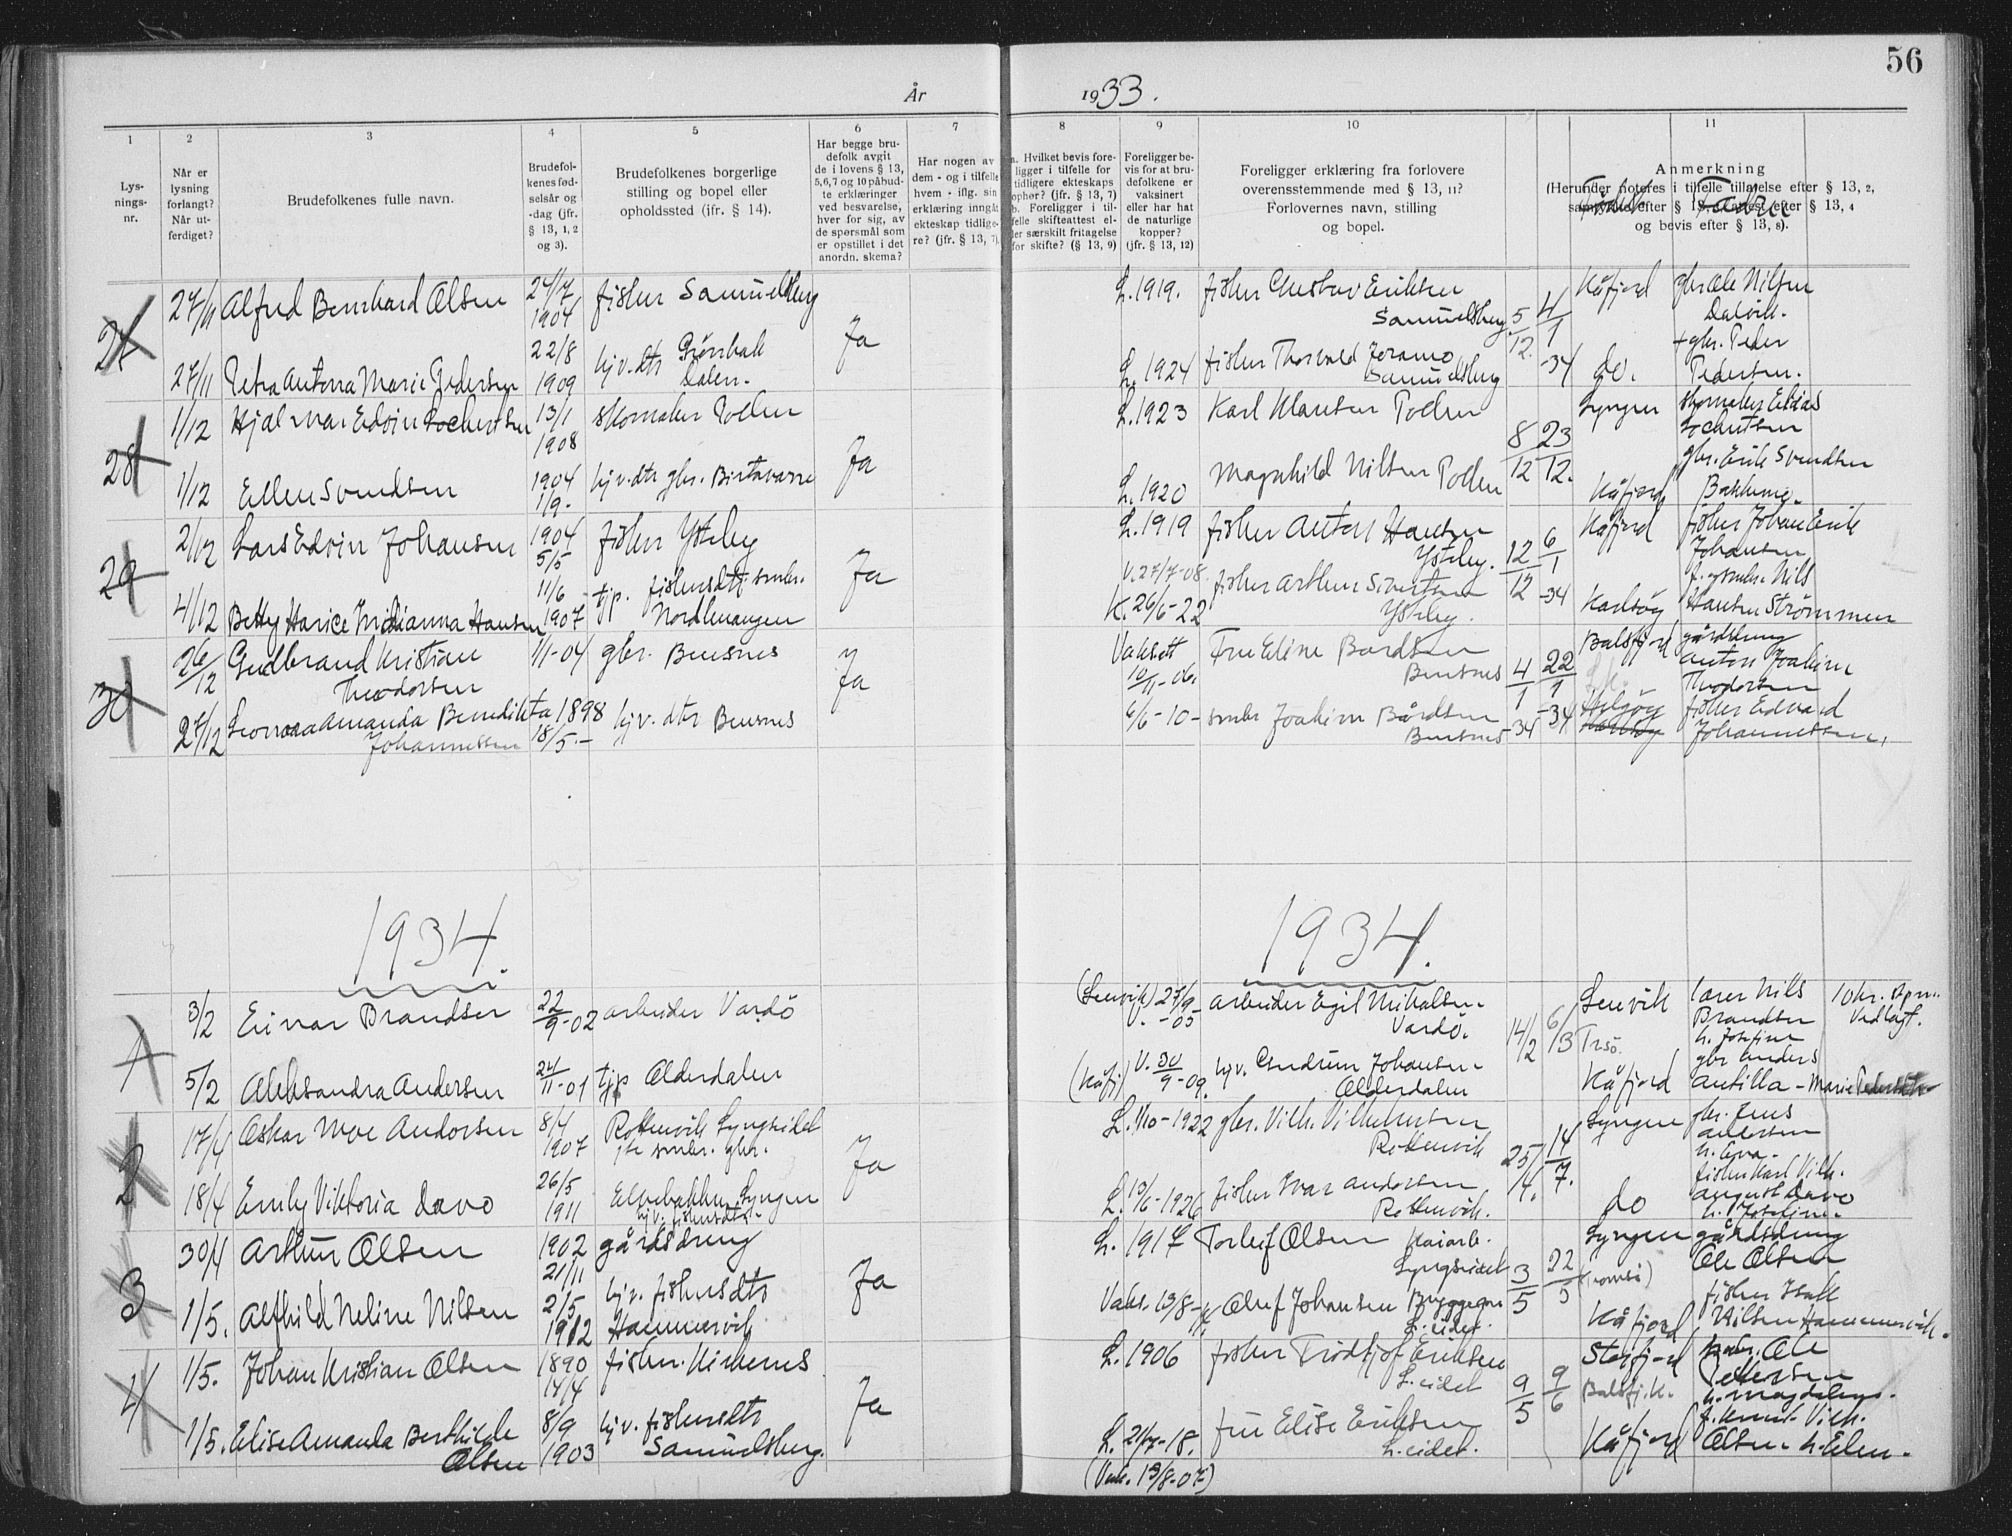 56
År 1933.
1 2 3 4 5 6 7 8 9 10 11
Lys-
nings-
nr.
Når er
lysning
forlangt?
Når ut-
ferdiget?
Brudefolkenes fulle navn.
Brudefol-
kenes fød-
selsår og
-dag (jfr.
§ 13, 1, 2
og 3).
Brudefolkenes borgerlige
stilling og bopel eller
opholdssted (jfr. § 14).
Har begge bru-
defolk avgit
de i lovens § 13,
5,6,7 og 10 påbud-
te erklæringer
ved besvarelse,
hver for sig, av
de spørsmål som
er opstillet i det
anordn. skema?
Har nogen av
dem - og i tilfelle
hvem - iflg. sin
erklæring inngåt
ekteskap tidlige-
re? (jfr. § 13, 7).
a. Hvilket bevis fore-
ligger i tilfelle for
tidligere ekteskaps
ophør? (jfr. § 13, 7)
b. Foreligger i til-
felle skifteattest el-
ler særskilt fritagelse
for skifte? (§ 13, 9)
Foreligger be-
vis for at bru-
defolkene er
vaksinert
eller har hat
de naturlige
kopper?
(jfr. § 13, 12)
Foreligger erklæring fra forlovere
overensstemmende med § 13, 11?
Forlovernes navn, stilling
og bopel.
Anmerkning
(Herunder noteres i tilfelle tillatelse efter § 13, 2,
samtykke efter § 13, 3, attest efter § 13, 4
og bevis efter § 13, 8).
27 27/11 Alfred Bernhard Olsen 24/7 1904 fisker Samuelsberg Ja L. 1919. fisker Gustav Eriksen Samuelsberg 5/12 4/1 -34 Kåfjord gbr. Ole Nilsen Dalvik.
27/11 Petra Antona Marie Pedersen 22/8 1909 hjv. dtr. Dalen. L. 1924 fisker Thorvald Samuelsberg do. + gbr. Peder Pedersen.
28 1/12 Hjalmar Edvin 13/1 1908 skomaker Pollen Ja L. 1923 Karl Hansen Pollen 8/12 23/12. Lyngen
1/12 Ellen Svendsen 1904 1/9. hjv. dtr gbr. Birtavarre L. 1920 Magnhild Nilsen Pollen Kåfjord gbr. Erik Svendsen
29 2/12 Lars Edvin Johansen 1904 5/5 fisker Ytreby Ja L. 1919 fisker Anton Hansen 12/12 6/1 -34 Kåfjord fisker Johan Erik Johansen
4/12 Betty Hansen 11/6 1907 tjp. fiskersdtr. smbr. Nordlenangen V. 27/7-08. K. 26/6-22 fisker Arthur Sivertsen Karlsøy Nils Hansen Strømmen
30 26/12 Gudbrand Kristian Theodorsen 1/1-04 gbr. Bensnes Ja Vaksatt 10/11-06. Fru Eline Bårdsen Bensnes 4/1 -34 22/1 -34 Balsfjord gårdbrug. Anton Joakim Theodorsen
27/12 Amanda Benedikta Johannessen 1898 18/5.- hjv. dtr Bensnes 6/6-10- smbr Joakim Bårdsen Bensnes Helgøy fisker Edvard Johannessen.
1934. 1934.
1 3/2 Einar Brandser 22/9-02 arbeider Vardö (Lenvik) V. 27/9-05 arbeider Egil Mikalsen Vardö. 14/2 6/3 Lenvik Tr.sö. lærer Nils Brandser h. Josefine 10 kr. Vedlagt.
5/2 Aleksandra Andersen 24/11-01 tjp Olderdalen (Kåfj) V. 30/9-09. hjv. Gudrun Johansen Olderdalen Kåfjord gbr Anders Antilla - Marie
2 17/4 Oskar Moe Andersen 8/4 1907 Rottenvik Lyngseidet smbr. gbr. Ja L. 1/10-1922 gbr. Vilh. Vilhelmsen Rottenvik 25/4. 14/7. Lyngen gbr. Jens Andersen
18/4 Emily Viktoria Davo 26/5 1911 Elvebakken Lyngen hjv. fiskersdtr. L. 13/6-1926 fisker Ivar Andersen Rottenvik. do fisker Karl Vilh. August Davo h. Josefine
3 30/4 Arthur Olsen 1902 21/11 gårdsdreng Ja L. 1917 Torleif Olsen Kaiarb. Lyngseidet 3/5 22/5 Lyngen (Tromsö) gårdsdreng Ole Olsen
1/5. Alfhild Neline Nilsen 2/5 1912 hjv. fiskersdtr Hammervik Vaks. 13/8- Oluf Johansen L.eidet. Kåfjord fisker Isak Nilsen Hammervik.
4 1/5. Johan Kristian Olsen 1890 fisker. Kirkenes Ja L. 1906 fisker Fridtjof Eriksen L.eidet 9/5 9/6 Storfjord Balsfj. k. Ole Pettersen h. Magdalena.
1/5. Elise Amanda Berthilde Olsen 8/9 1903 hjv. fiskersdtr Samuelsberg. L. 21/7-18. (Vak. 13/8-07) fru Elise Eriksen L.eidet. Kåfjord f. Knut Vilh. Olsen h. Elen.